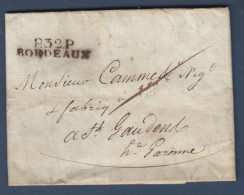 P32P
BORDEAUX
Monsieur Cammel Neg^t
& fabriq
a St. Gaudens
h^te Garonne